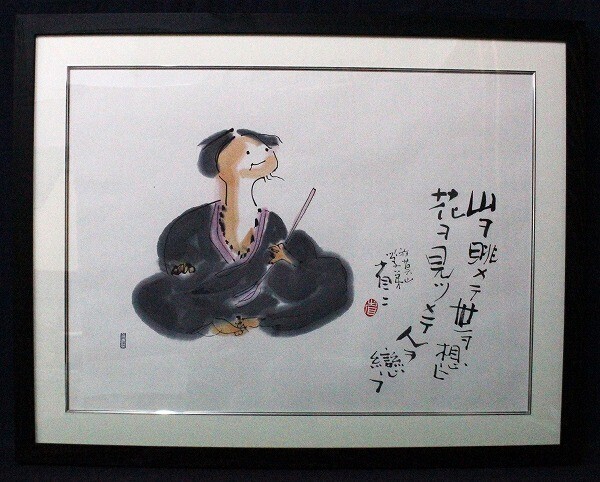 山ヲ眺メテ世ヲ想ヒ
花ヲ見ツメテ人ヲ
戀フ
省二